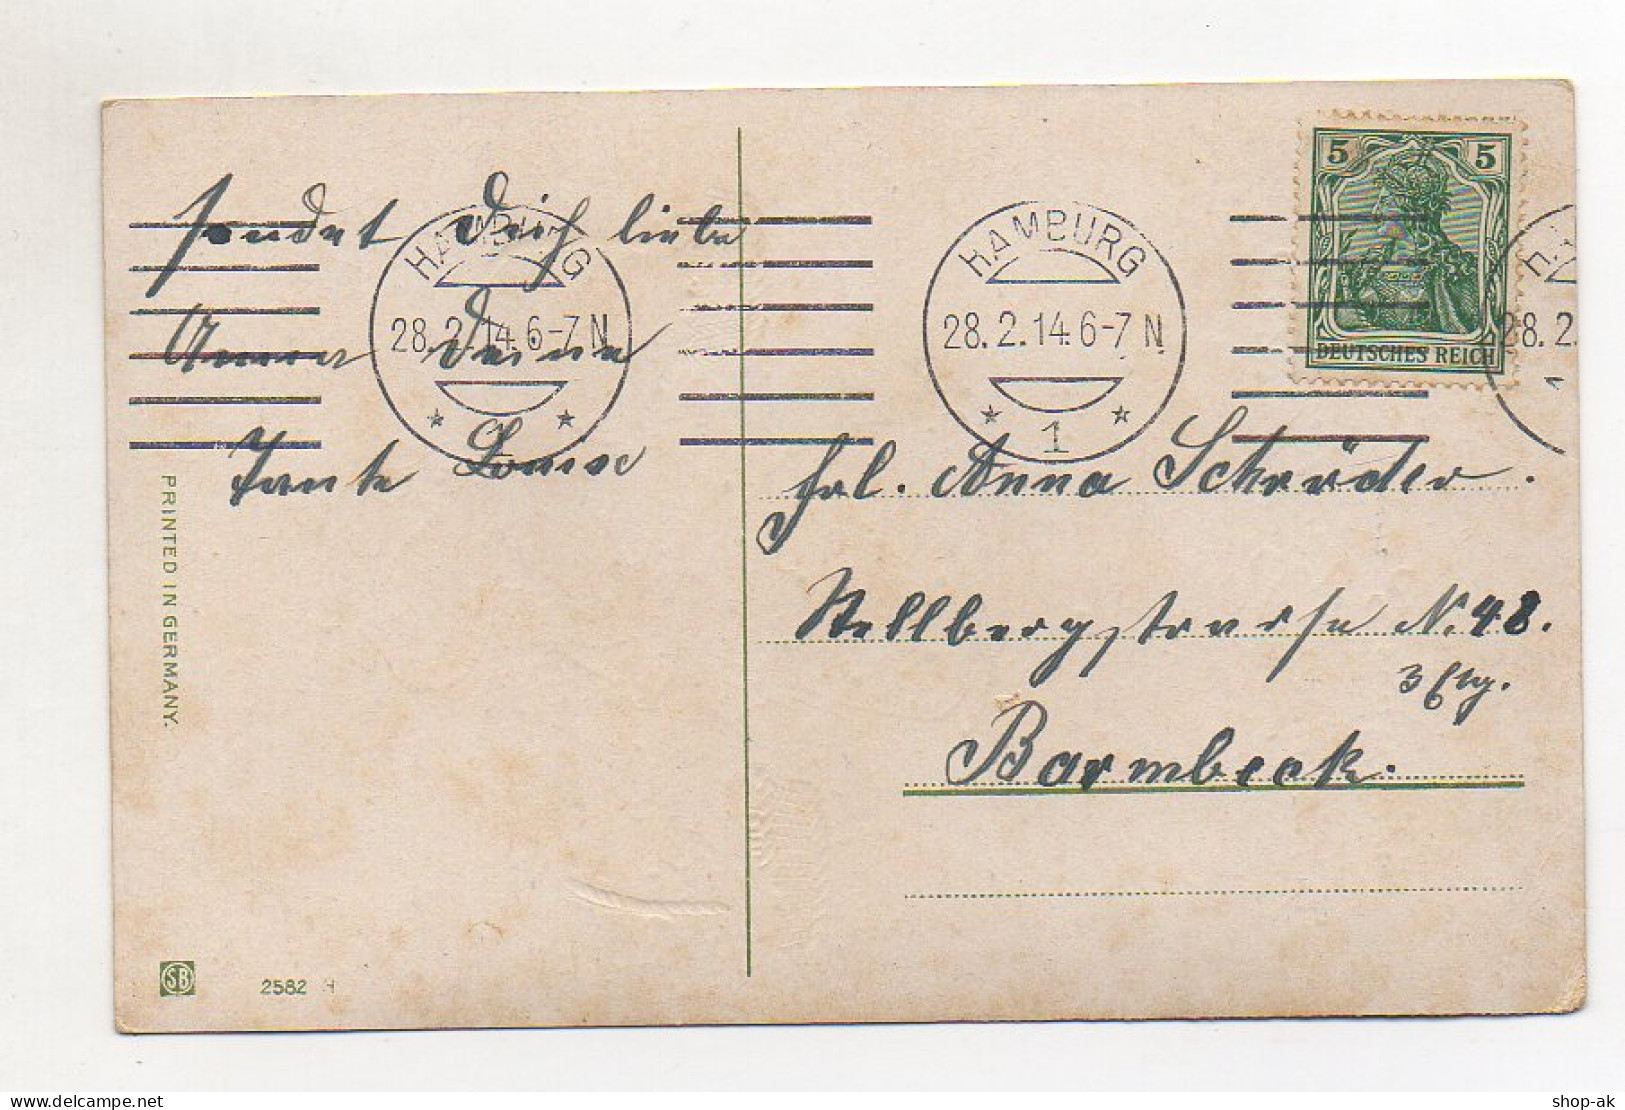 sendet Dich liebe
Anna Deine
Tante Louise
PRINTED IN GERMANY.
SB
2582
HAMBURG
28.2.14.6-7N
* *
HAMBURG
28.2.14.6-7N
* 1 *
5 5
DEUTSCHES REICH
28.2.
1
Frl. Anna Schröder.
Stellbergstrasse N. 48.
3 Etg.
Barmbeck.
shop-ak